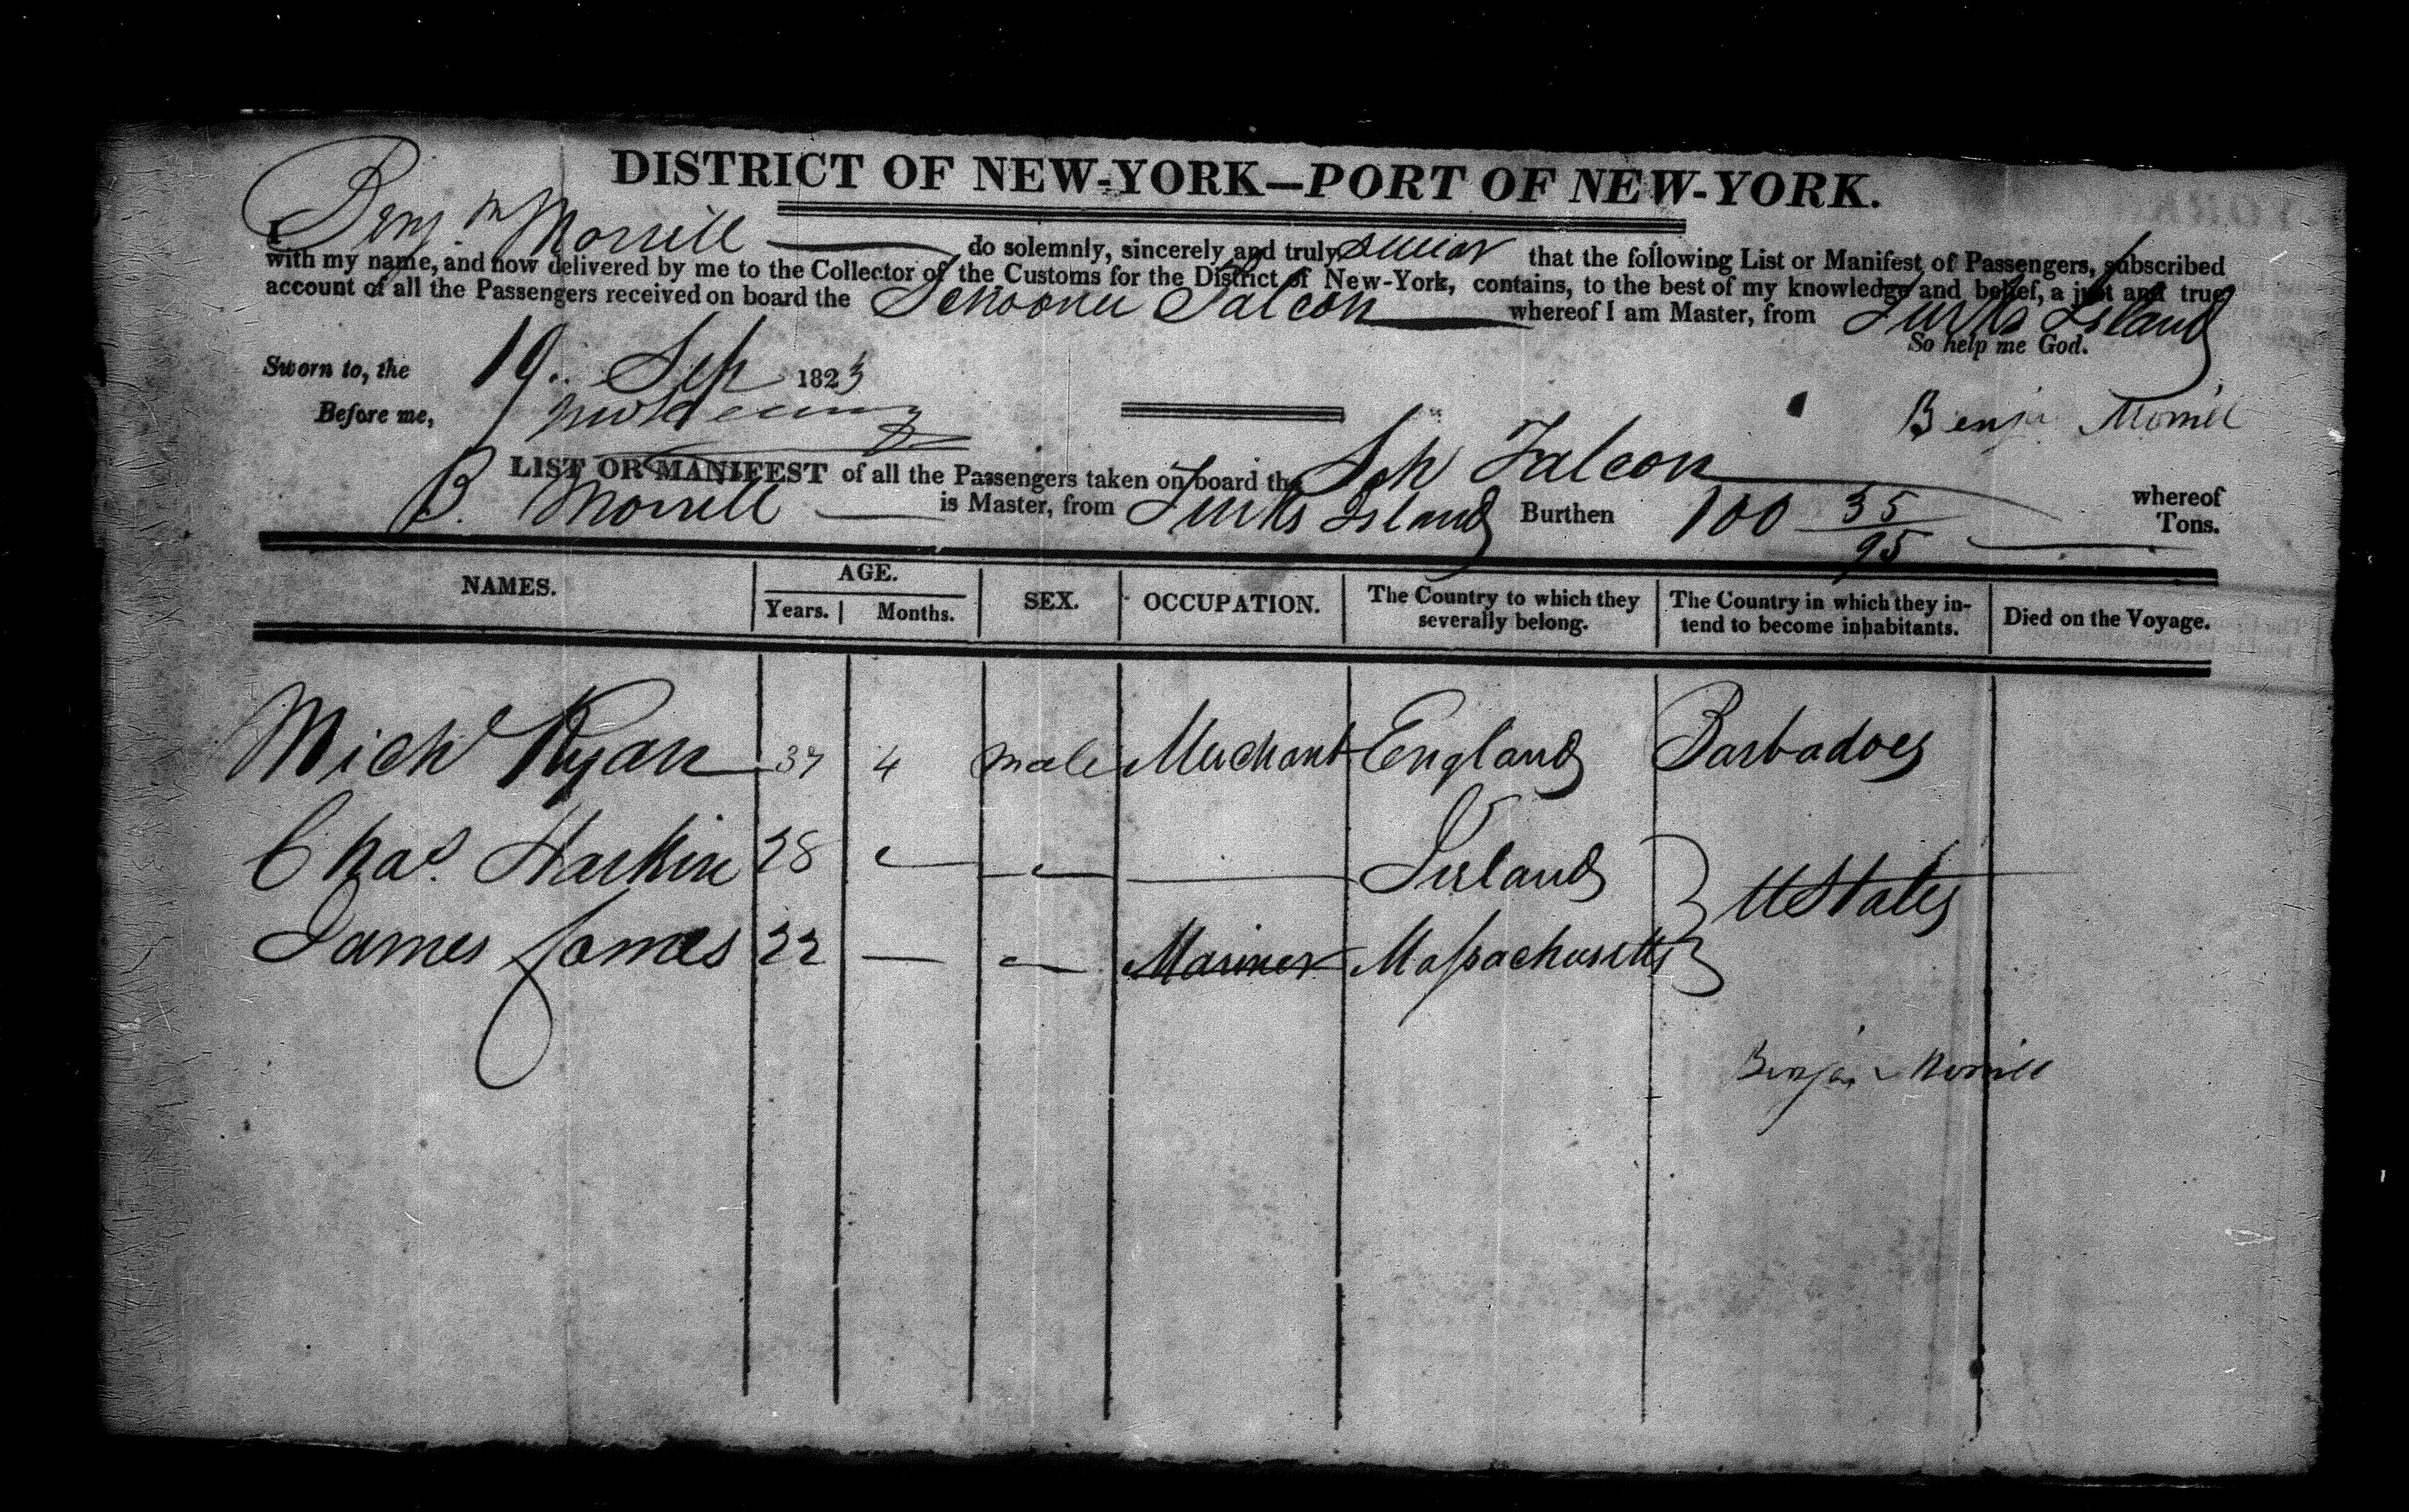 DISTRICT OF NEW-YORK—PORT OF NEW-YORK.
I Benjn Morrill do solemnly, sincerely and truly swear that the following List or Manifest of Passengers, subscribed
with my name, and now delivered by me to the Collector of the Customs for the District of New-York, contains, to the best of my knowledge and belief, a just and true
account of all the Passengers received on board the Schooner Falcon whereof I am Master, from Turks Island
So help me God.
Sworn to, the 19. Sep 1823
Before me,
Benja Morrill
LIST OR MANIFEST of all the Passengers taken on board the Sch Falcon whereof
B. Morrill is Master, from Turks Island Burthen 100 35/95 Tons.
NAMES. AGE. Years. Months. SEX. OCCUPATION. The Country to which they severally belong. The Country in which they intend to become inhabitants. Died on the Voyage.
Michl Ryan 37 4 male Merchant England Barbadoes
Chas. Harkin 28 — — — Ireland
UStates
James James 22 — — Mariner Massachusetts
Benja Morrill